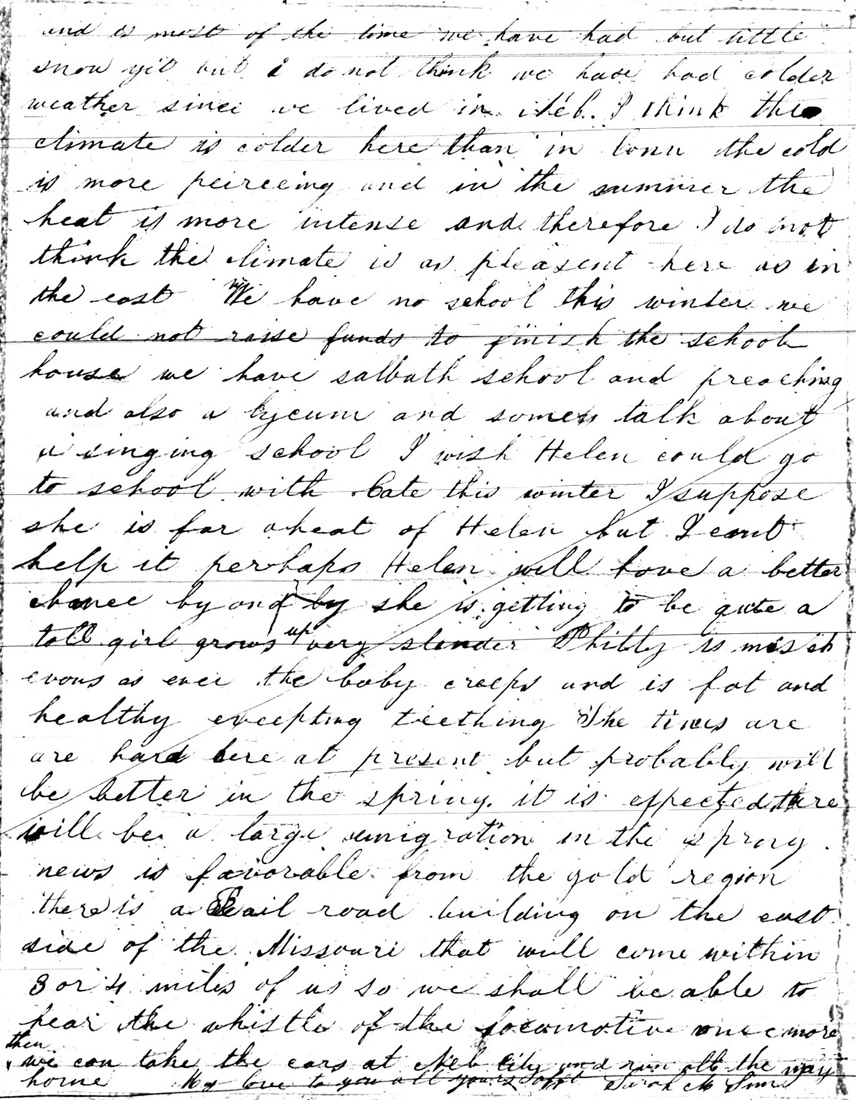 and is most of the time we have had but little
snow yit but i do not think we have had colder
weather since we lived in Neb. I think the
climate is colder here than in Conn the cold
is more peirceing and in the summer the
heat is more intense and therefore I do not
think the climate is as pleasent here as in
the east We have no school this winter we
could not raise funds to finish the school
house we have sabbath school and preaching
and also a lyceum and some talk about
a singing school I wish Helen could go
to school with Cate this winter I suppose
she is far aheat of Helen but I cant
help it perhaps Helen will have a better
chance by and by she is getting to be quite a
tall girl grows up very slender Philly is misch
evous as ever the baby creeps and is fat and
healthy excepting teething The times are
are hard here at present but probably will
be better in the spring. it is expected there
will be a large emigration in the spring.
news is favorable from the gold region
there is a Rail road building on the east
side of the Missouri that will come within
3 or 4 miles of us so we shall be able to
hear the whistle of the locomotive once more
then we can take the cars at Neb City and run all the way
home My love to you all yours Sarah M Sim